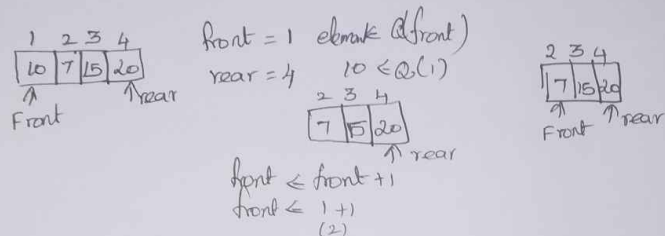 1 2 3 4
10 7 15 20
Front
rear
front = 1 element Q(front)
rear = 4 10 ← Q(1)
2 3 4
7 15 20
rear
front ← front +1
front ← 1+1
(2)
2 3 4
7 15 20
Front
rear